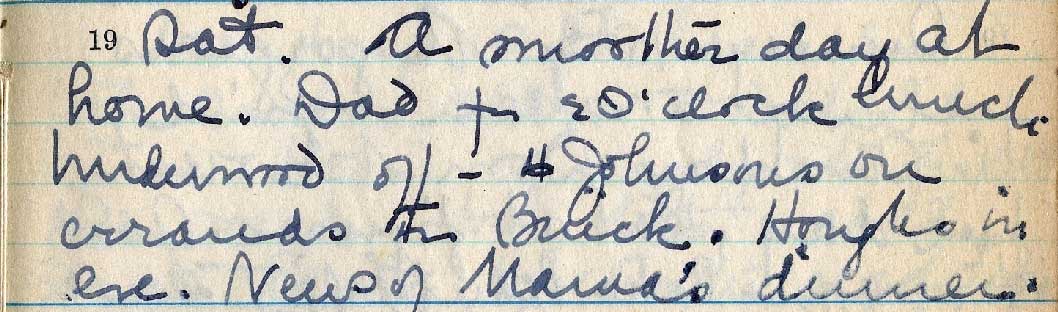 19 Sat. A smoother day at
home. Dad for 2 O'clock lunch.
Underwood off - Johnsons on
errands for Buick. Houghs in
eve. News of Mama's dinner.